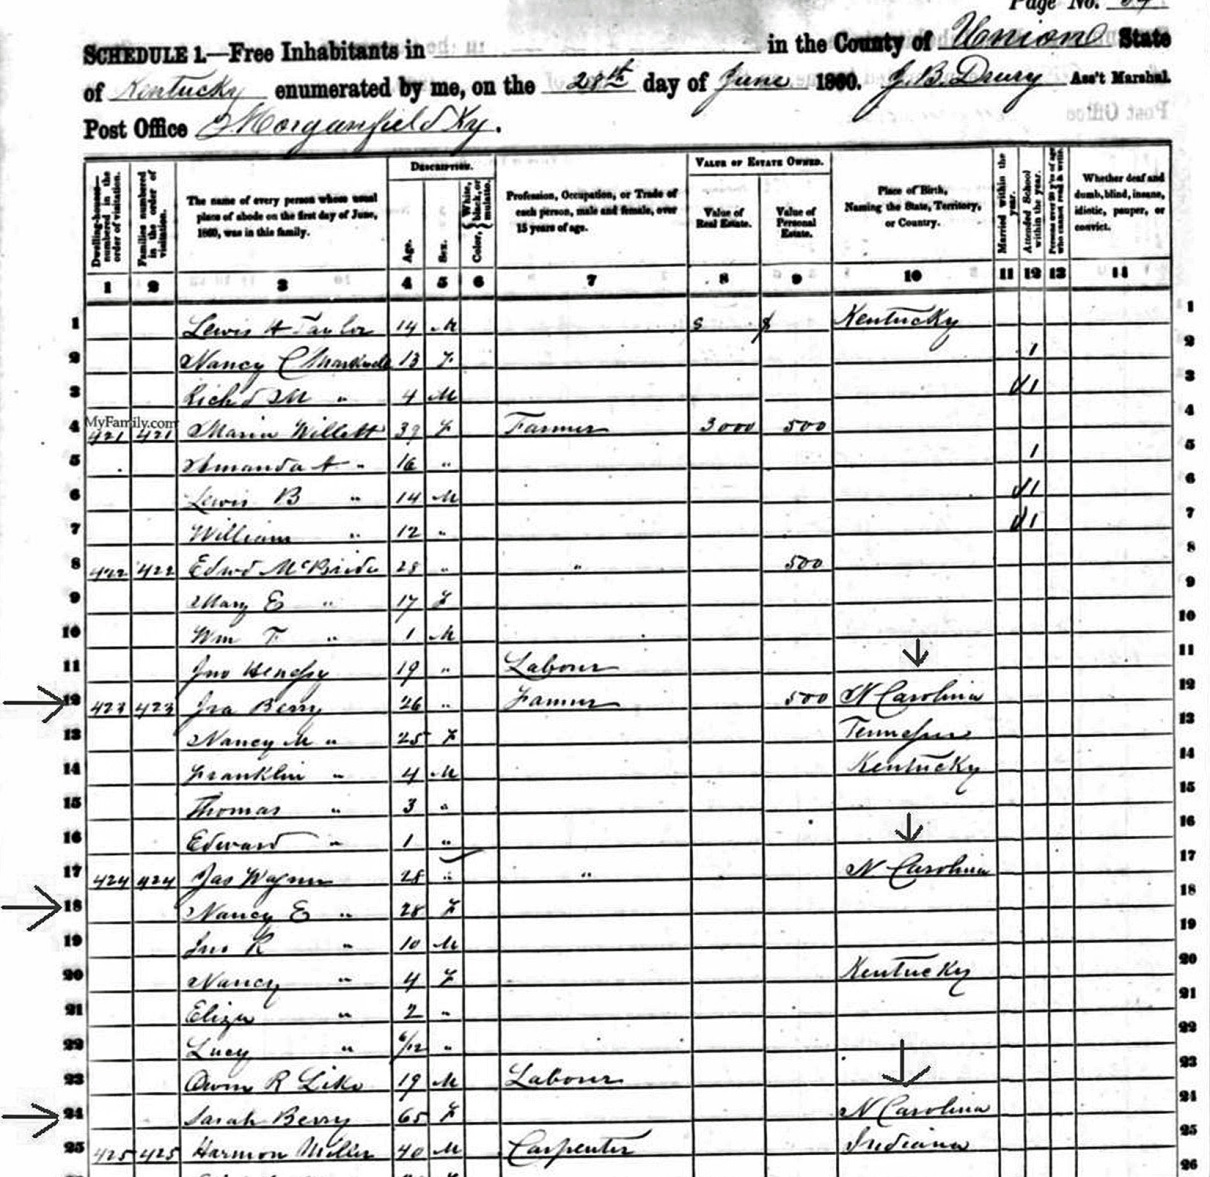 Page No. 54
SCHEDULE 1.—Free Inhabitants in in the County of Union State
of Kentucky enumerated by me, on the 28th day of June 1860. J. B. Drury Ass't Marshal.
Post Office Morganfield Ky.
DESCRIPTION. VALUE OF ESTATE OWNED.
Dwelling-houses—numbered in the order of visitation. Families numbered in the order of visitation. The name of every person whose usual place of abode on the first day of June, 1860, was in this family. Age. Sex. Color, White, black, or mulatto. Profession, Occupation, or Trade of each person, male and female, over 15 years of age. Value of Real Estate. Value of Personal Estate. Place of Birth, Naming the State, Territory, or Country. Married within the year. Attended School within the year. Persons over 20 y'rs of age who cannot read & write. Whether deaf and dumb, blind, insane, idiotic, pauper, or convict.
1 2 3 4 5 6 7 8 9 10 11 12 13 14
1 Lewis H Taylor 14 M $ $ Kentucky 1
2 Nancy C 13 F 1 2
3 Rich'd M " 4 M 1 3
MyFamily.com
4 421 421 Maria Willett 39 F Farmer 3000 500 4
5 Amanda A " 16 " 1 5
6 Lewis B " 14 M 1 6
7 William " 12 " 1 7
8 422 422 Edwd McBride 28 " " 500 8
9 Mary E " 17 F 9
10 Wm F " 1 M 10
11 Jno 19 " Labour 11
12 423 423 Ira Berry 26 " Farmer 500 N Carolina 12
13 Nancy M " 25 F Tennessee 13
14 Franklin " 4 M Kentucky 14
15 Thomas " 3 " 15
16 Edward " 1 " 16
17 424 424 Jas 28 " " N Carolina 17
18 Nancy E " 28 F 18
19 Jno R " 10 M 19
20 Nancy " 4 F Kentucky 20
21 Eliza " 2 " 21
22 Lucy " 6/12 " 22
23 Owen R Like 19 M Labour 23
24 Sarah Berry 65 F N Carolina 24
25 425 425 Harmon Miller 40 M Carpenter Indiana 25
26